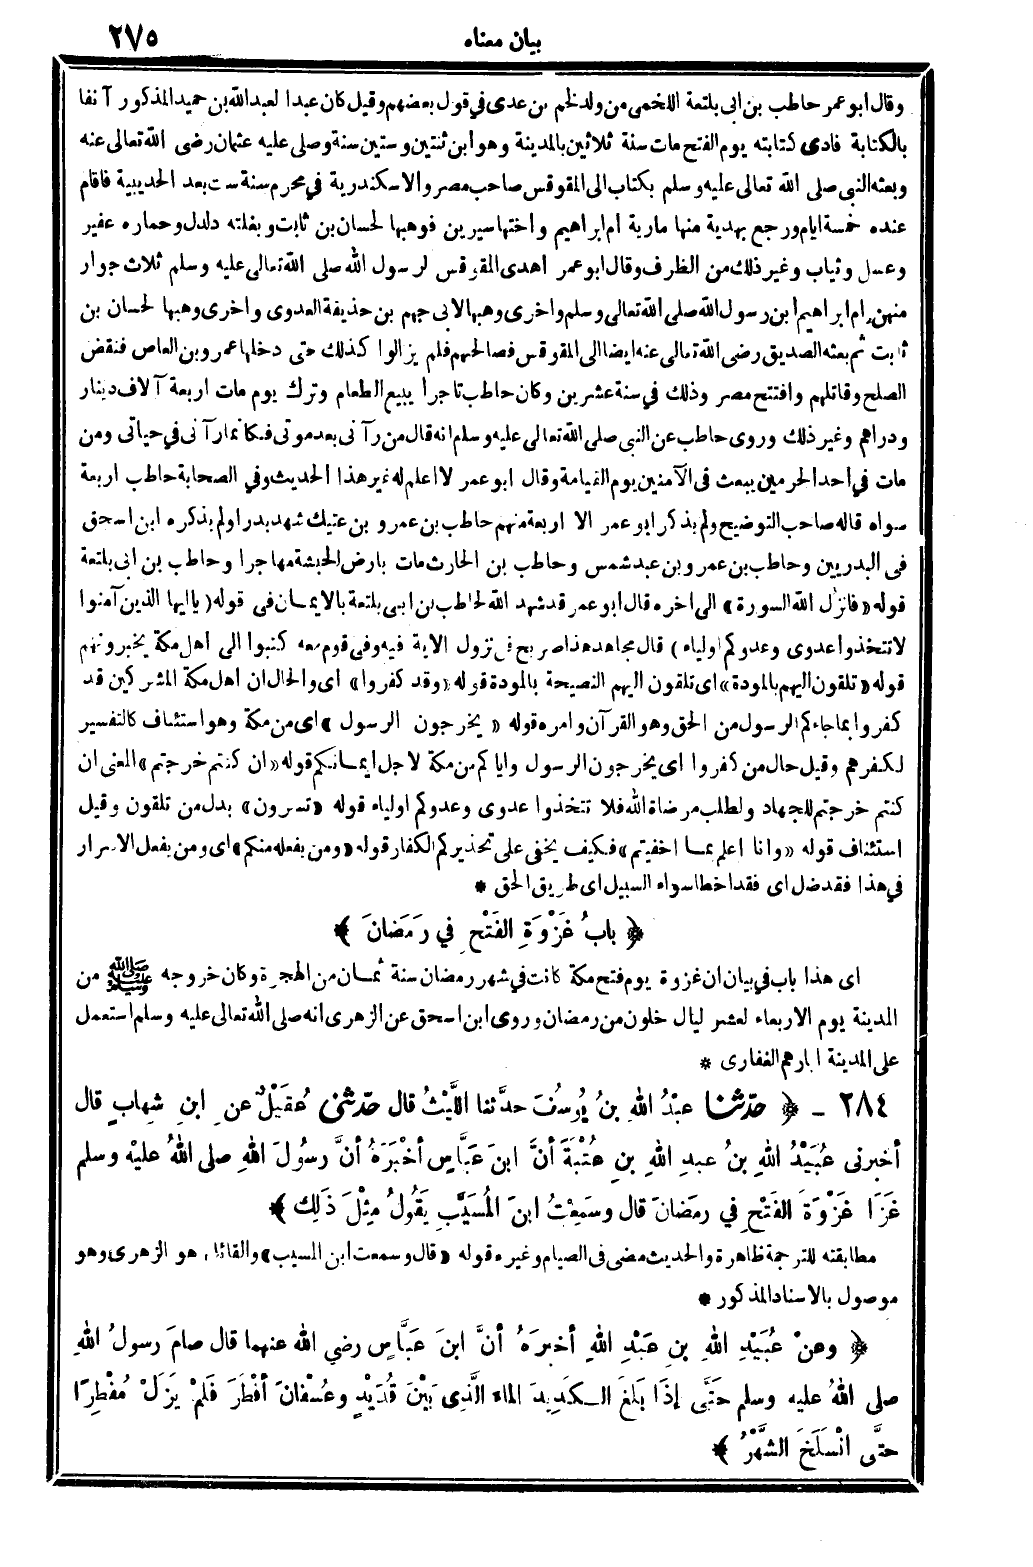 بيان معناه ٢٧٥
وقال ابو عمر حاطب بن ابى بلتعة اللخمى من ولد لخم بن عدى في قول بعضهم وقيل كان عبدا لعبد الله بن حميد المذكور آنفا
بالكتابة فادى كتابته يوم الفتح مات سنة ثلاثين بالمدينة وهو ابن ثنتين وستين سنة وصلى عليه عثمان رضى الله تعالى عنه
وبعثه النبى صلى الله تعالى عليه وسلم بكتاب الى المقوقس صاحب مصر والاسكندرية في محرم سنة ست بعد الحديبية فاقام
عنده خمسة ايام ورجع بهدية منها مارية ام ابراهيم واختها سيرين فوهبها لحسان بن ثابت وبغلته دلدل وحماره عفير
وعسل وثياب وغير ذلك من الظرف وقال ابو عمر اهدى المقوقس لرسول الله صلى الله تعالى عليه وسلم ثلاث جوار
منهن ام ابراهيم ابن رسول الله صلى الله تعالى وسلم واخرى وهبها لابى جهم بن حذيفة العدوى واخرى وهبها لحسان بن
ثابت ثم بعثه الصديق رضى الله تعالى عنه ايضا الى المقوقس فصالحهم فلم يزالوا كذلك حتى دخلها عمرو بن العاص فنقض
الصلح وقاتلهم وافتتح مصر وذلك في سنة عشرين وكان حاطب تاجرا يبيع الطعام وترك يوم مات اربعة آلاف دينار
ودراهم وغير ذلك وروى حاطب عن النبى صلى الله تعالى عليه وسلم انه قال من رآنى بعد موتى فكانما رآنى في حياتى ومن
مات في احد الحرمين يبعث فى الآمنين يوم القيامة وقال ابو عمر لا اعلم له غير هذا الحديث وفي الصحابة حاطب اربعة
سواه قاله صاحب التوضيح ولم يذكر ابو عمر الا اربعة منهم حاطب بن عمرو بن عتيك شهد بدرا ولم يذكره ابن اسحق
فى البدريين وحاطب بن عمرو بن عبد شمس وحاطب بن الحارث مات بارض الحبشة مهاجرا وحاطب بن ابى بلتعة
قوله «فانزل الله السورة» الى اخره قال ابو عمر قد شهد الله لحاطب بن ابى بلتعة بالايمان فى قوله (ياايها الذين آمنوا
لا تتخذوا عدوى وعدوكم اولياء) قال مجاهد هذا صريح فى نزول الاية فيه وفى قوم معه كتبوا الى اهل مكة يخبرونهم
قوله «تلقون اليهم بالمودة» اى تلقون اليهم النصيحة بالمودة قوله «وقد كفروا» اى والحال ان اهل مكة المشركين قد
كفروا بما جاءكم الرسول من الحق وهو القرآن وامره قوله « يخرجون الرسول » اى من مكة وهو استئناف كالتفسير
لكفرهم وقيل حال من كفروا اى يخرجون الرسول واياكم من مكة لاجل ايمانكم قوله «ان كنتم خرجتم» المعنى ان
كنتم خرجتم للجهاد ولطلب مرضاة الله فلا تتخذوا عدوى وعدوكم اولياء قوله «تسرون» بدل من تلقون وقيل
استئناف قوله «وانا اعلم بما اخفيتم» فكيف يخفى على تحذيركم الكفار قوله «ومن يفعله منكم» اى ومن يفعل الاسرار
في هذا فقد ضل اى فقد اخطا سواء السبيل اى طريق الحق *
﴿ بابُ غَزْوَةِ الفَتْحِ في رَمَضَانَ ﴾
اى هذا باب في بيان ان غزوة يوم فتح مكة كانت في شهر رمضان سنة ثمان من الهجرة وكان خروجه ﷺ من
المدينة يوم الاربعاء لعشر ليال خلون من رمضان وروى ابن اسحق عن الزهرى انه صلى الله تعالى عليه وسلم استعمل
على المدينة ابا رهم الغفارى *
٢٨٤ ـ ﴿ حدّثنا عبْدُ اللهِ بنُ يُوسُفَ حدّثنا اللّيْثُ قال حدّثنى عُقَيْلٌ عنِ ابنِ شِهابٍ قال
أخبرنى عُبَيْدُ اللهِ بنُ عبدِ اللهِ بنِ عُتْبَةَ أنَّ ابنَ عَبَّاسٍ أخْبَرَهُ أنَّ رسُولَ اللهِ صلى اللهُ عليْه وسلم
غَزَا غَزْوَةَ الفَتْحِ في رمَضانَ قال وسَمِعْتُ ابنَ المُسَيَّبِ يَقُولُ مِثْلَ ذَلِكَ ﴾
مطابقته للترجمة ظاهرة والحديث مضى فى الصيام وغيره قوله «قال وسمعت ابن المسيب» والقائل هو الزهرى وهو
موصول بالاسناد المذكور *
﴿ وعنْ عُبَيْدِ اللهِ بنِ عَبْدِ اللهِ أخبرَهُ أنَّ ابنَ عَبَّاسٍ رضي الله عنهما قال صامَ رسولُ اللهِ
صلى اللهُ عليه وسلم حتَّى إذَا بَلَغَ الكَدِيدَ الماءَ الَّذِى بَيْنَ قُدَيْدٍ وعُسْفانَ أفْطَرَ فَلَمْ يَزَلْ مُفْطِرًا
حتَّى انْسَلَخَ الشَّهْرُ ﴾